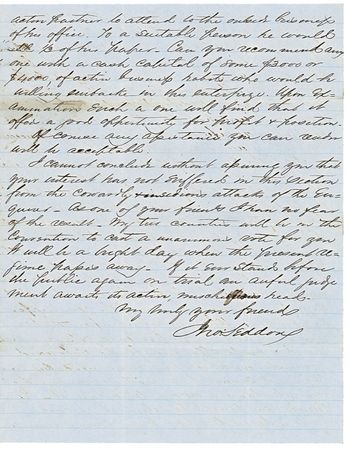 active partner to attend to the outside business
of his office. To a suitable person he would
sell ½ of his paper. Can you recommend any
one with a cash capital of some $3000 or
$4000, of active business habits who would be
willing embark in this enterprize. Upon ex-
amination such a one will find that it
offers a good opportunity for profit & position
Of course any assistance you can render
will be acceptable.
I cannot conclude without assuring you that
your interest has not suffered in this section
from the cowardly & insidious attacks of the En-
quirer. As one of your friends I have no fear
of the result. My two counties will be in the
Convention to cast a unanimous vote for you
It will be a bright day when the present
passes away. If it ever stands before
the public again on trial an awful judge
ment awaits its active mischievous
My truly your friend
Jno